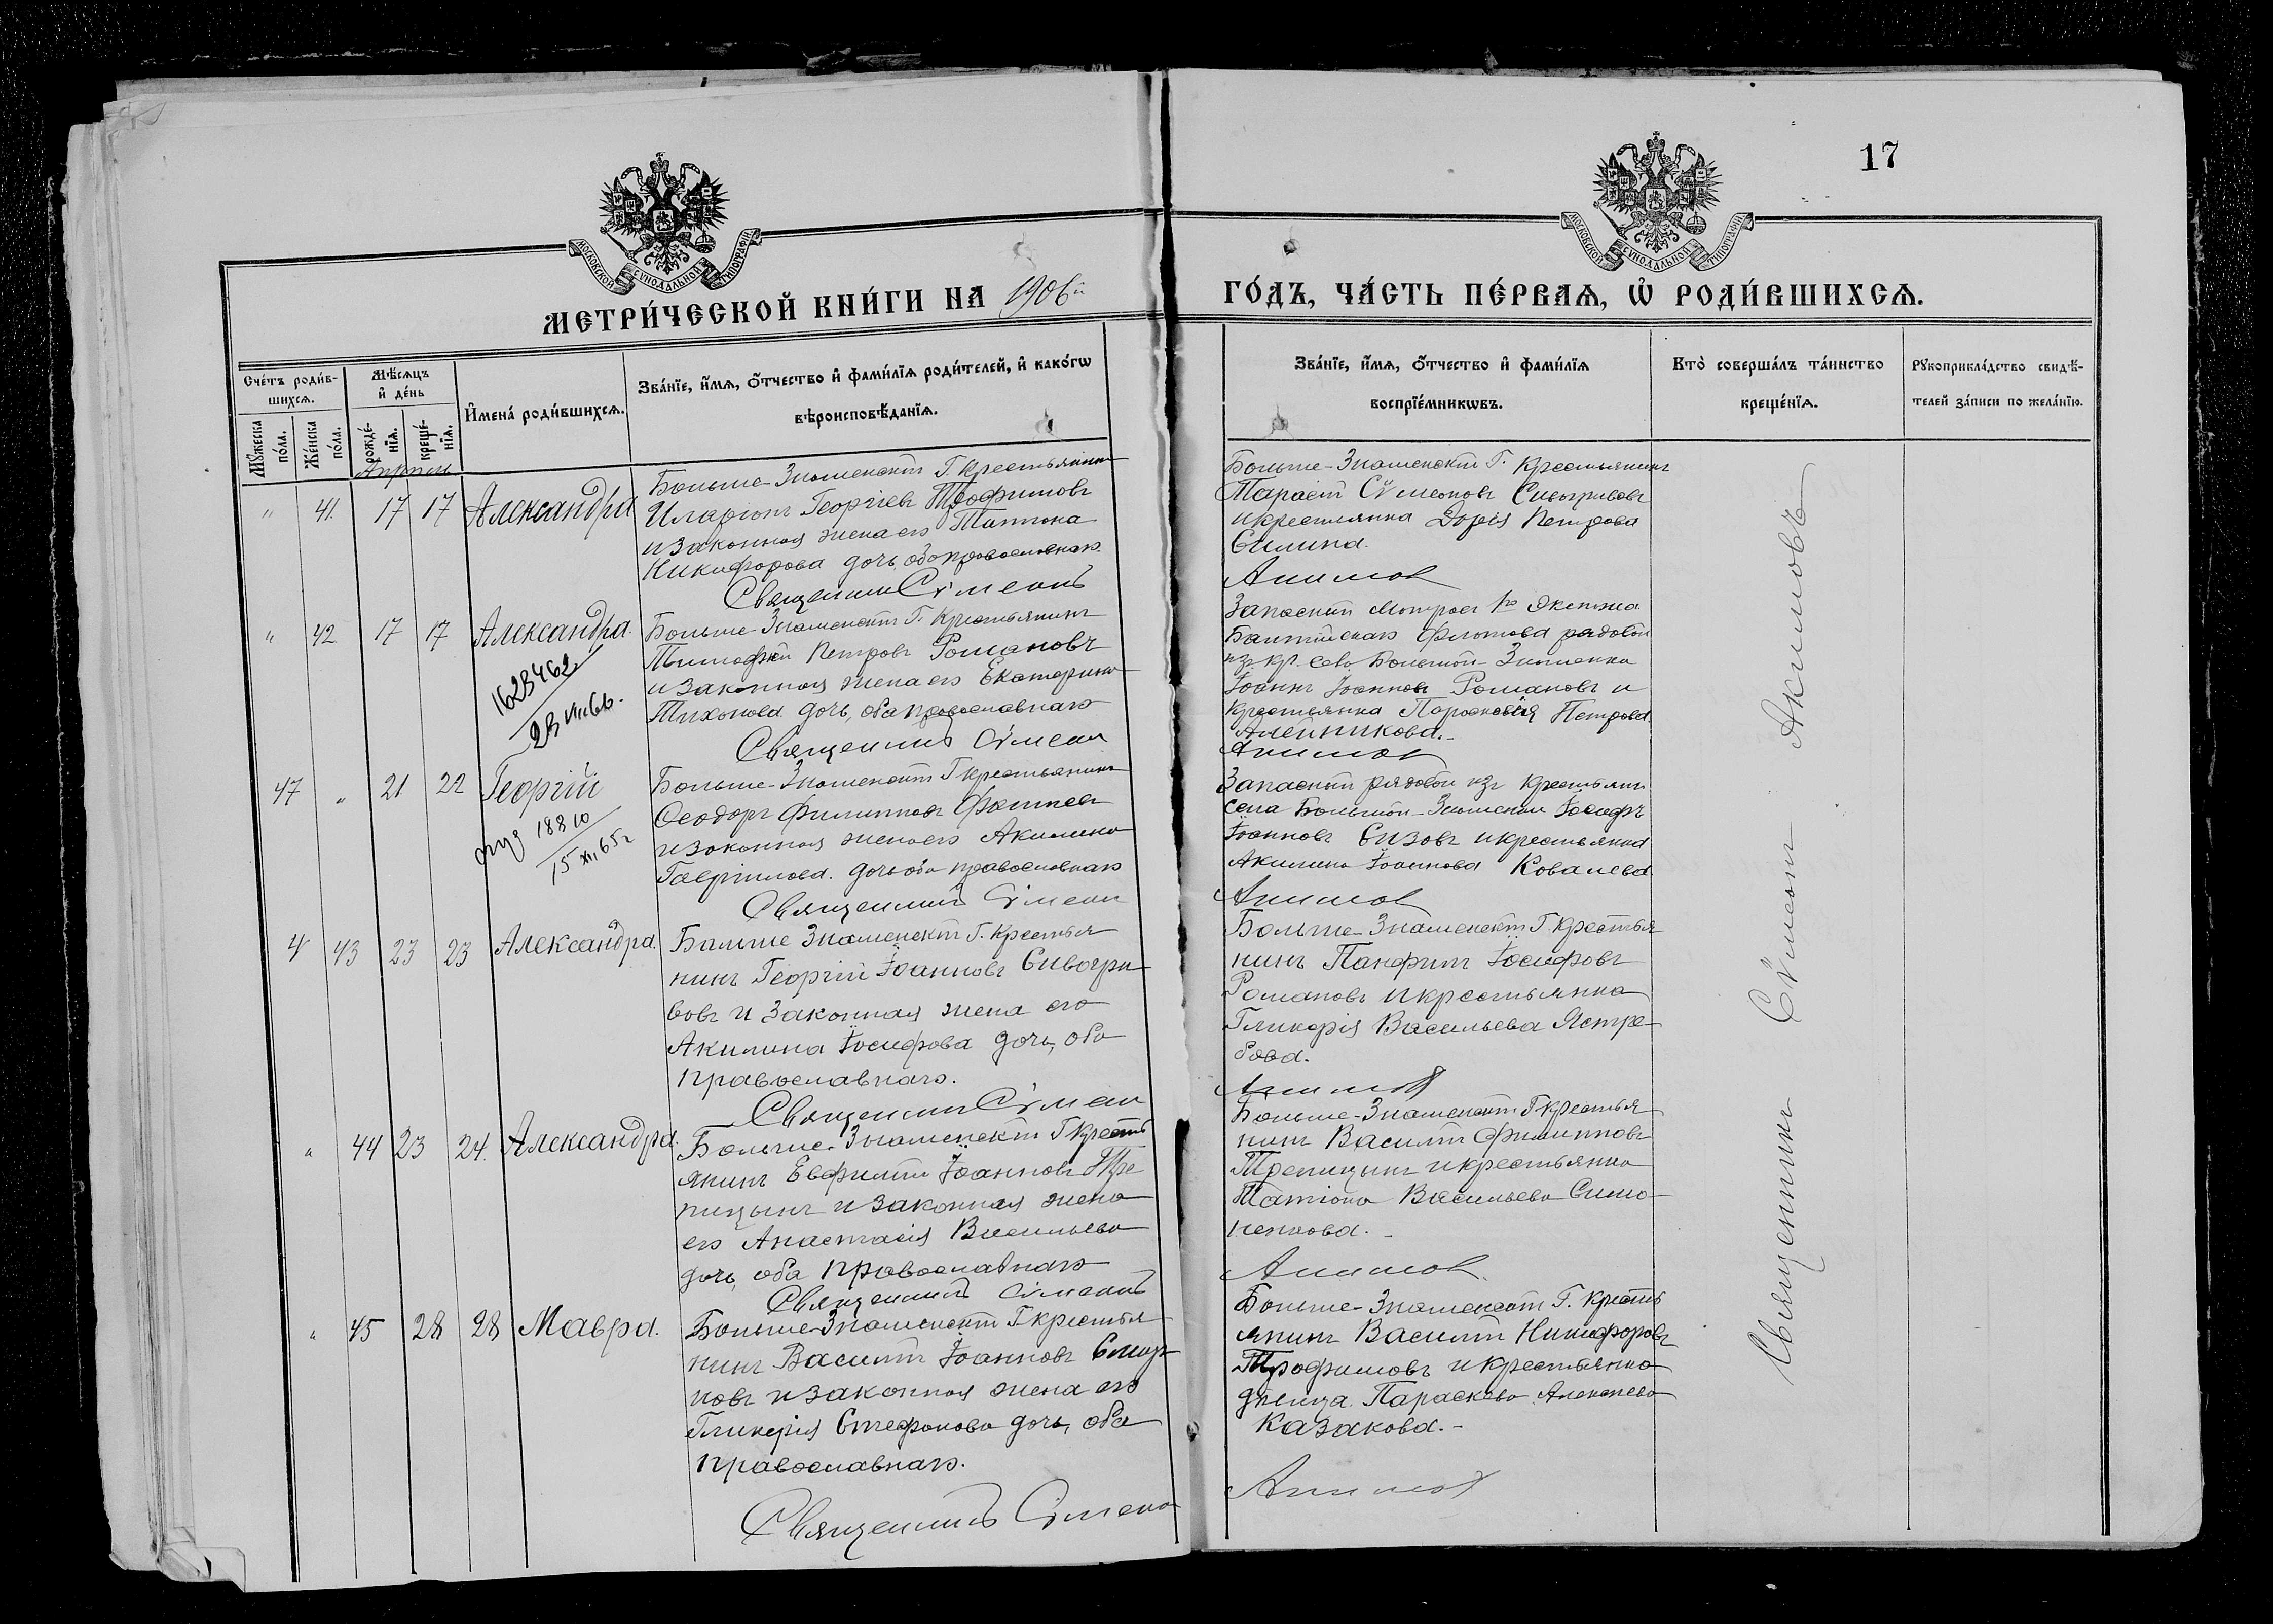 17
МОСКОВСКОЙ СѴНОДАЛЬНОЙ ТИПОГРАФІИ
МОСКОВСКОЙ СѴНОДАЛЬНОЙ ТИПОГРАФІИ
МЕТРИ́ЧЕСКОЙ КНИ́ГИ НА 1906й
ГО́ДЪ, ЧА́СТЬ ПЕ́РВАѦ, Ѡ҆ РОДИ́ВШИХСѦ.
Сче́тъ роди́в-
шихсѧ.
Мѣ́сѧцъ
и҆ де́нь
Мꙋ́жеска
по́ла.
Же́нска
по́ла.
рожде́-
нїѧ.
креще́-
нїѧ.
И҆мена̀ роди́вшихсѧ.
Зва́нїе, и҆́мѧ, ѻ҆́тчество и҆ фами́лїѧ роди́телей, и҆ како́гѡ
вѣроисповѣ́данїѧ.
Зва́нїе, и҆́мѧ, ѻ҆́тчество и҆ фами́лїѧ
воспрїе́мникѡвъ.
Кто̀ соверша́лъ та́инство
креще́нїѧ.
Рꙋкоприкла́дство свидѣ́-
телей за́писи по жела́нїю.
Апрѣль
" 41. 17 17 Александра
Больше-Знаменскій Г. Крестьянинъ
Иларіонъ Георгіевъ Трофимовъ
и законная жена его Татіана
Никифорова дочь, оба православнаго
Священникъ Сѵмеонъ
Больше-Знаменскій Г. Крестьянинъ
Тарасій Сѵмеоновъ Сивогривовъ
и крестьянка Дарія Петрова
Силина.
Акимовъ
" 42 17 17 Александра.
1623462
23
Больше-Знаменскій Г. Крестьянинъ
Тимофей Петровъ Романовъ
и законная жена его Екатерина
Тихонова дочь, оба православнаго
Священникъ Сѵмеонъ
Запасный Матросъ
Балтійскаго флотова рядовой
изъ кр. села Большой-Знаменки
Іоаннъ Іоанновъ Романовъ и
крестьянка Параскевія Петрова
Алейникова.-
Акимовъ
47 " 21 22 Георгій
18810
15 XII 65 г
Больше-Знаменскій Г крестьянинъ
Ѳеодоръ Филипповъ
и законная жена его Акилина
Гавріилова. дочь оба православнаго
Священникъ Сѵмеонъ
Запасный рядовой изъ крестьянъ
села Большой-Знаменки Іосифъ
Іоанновъ Сизовъ и крестьянка
Акилина Іоаннова Ковалева
Акимовъ
43 23 23 Александра.
Больше Знаменскій Г. Крестья
нинъ Георгій Іоанновъ Сивогри
вовъ и законная жена его
Акилина Іосифова дочь, оба
православнаго.
Священникъ Сѵмеонъ
Больше-Знаменскій Г. Крестья
нинъ Панфилъ Іосифовъ
Романовъ и крестьянка
Гликерія Васильева Ястре-
бова.
Акимовъ
" 44 23 24. Александра.
Больше-Знаменскій Г Кресть
янинъ Евфимій Іоанновъ Тре
пицынъ и законная жена
его Анастасія Васильева
дочь, оба православнаго
Священникъ Сѵмеонъ
Больше-Знаменскій Г крестья
нинъ Василій Филипповъ
Трепицынъ и крестьянка
Татіана Васильева Симо-
ненкова.-
Акимовъ.
" 45 28 28 Мавра.
Больше-Знаменскій Г крестья
нинъ Василій Іоанновъ Смир
новъ и законная жена его
Гликерія Стефанова дочь, оба
православнаго.
Священникъ Сѵмеонъ
Больше-Знаменскій Г. Кресть
янинъ Василій Никифоровъ
Трофимовъ и крестьянка
дѣвица Параскева Алексѣева
Казакова.-
Акимовъ
Священникъ Сѵмеонъ Акимовъ